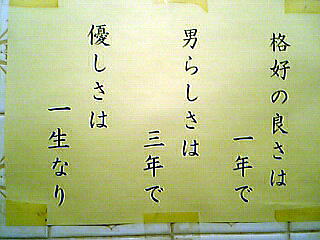 格好の良さは
一年で
男らしさは
三年で
優しさは
一生なり